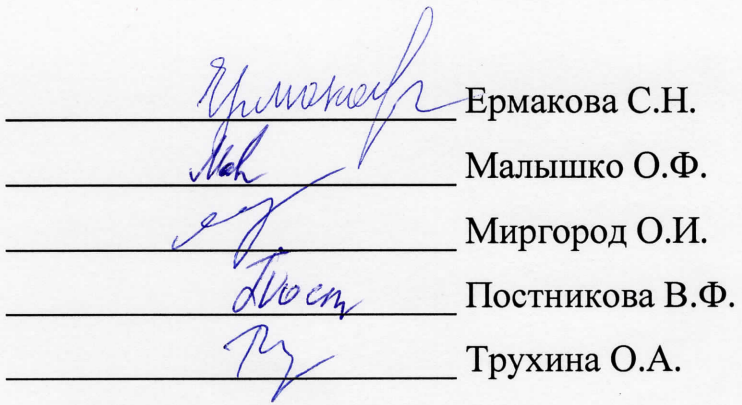 Ермакова С.Н.
Малышко О.Ф.
Миргород О.И.
Постникова В.Ф.
Трухина О.А.